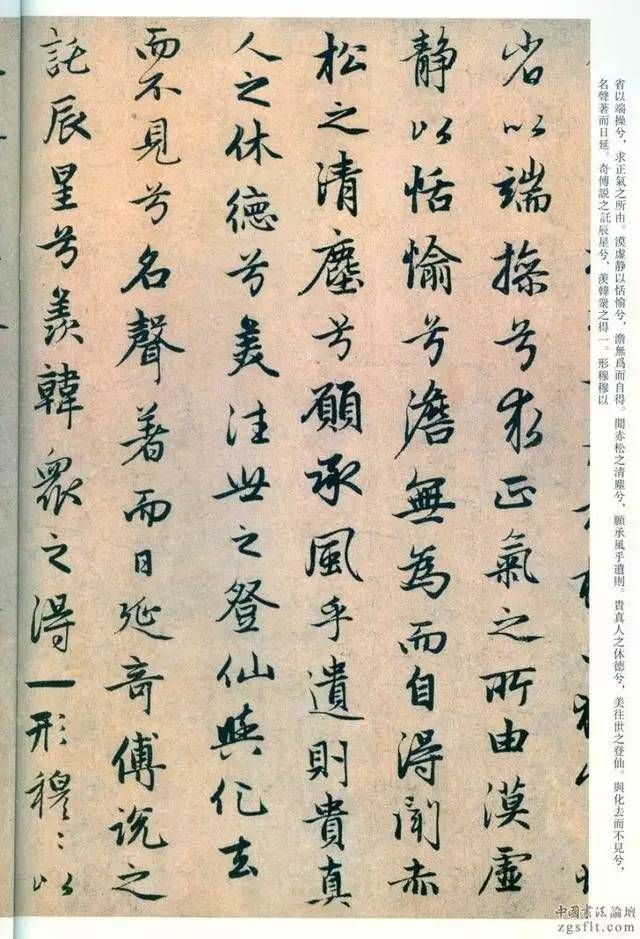 省以端操兮求正氣之所由漠虛
靜以恬愉兮澹無為而自得聞赤
松之清塵兮願承風乎遺則貴真
人之休德兮美往世之登仙與化去
而不見兮名聲著而日延奇傅說之
託辰星兮羨韓眾之得一形穆〻以
省以端操兮，求正氣之所由。漠虛静以恬愉兮，澹無爲而自得。聞赤松之清塵兮，願承風乎遺則。貴真人之休德兮，美往世之登仙。與化去而不見兮，
名聲著而日延。奇傅説之託辰星兮，羨韓衆之得一。形穆穆以
中國書法論壇
zgsflt.com